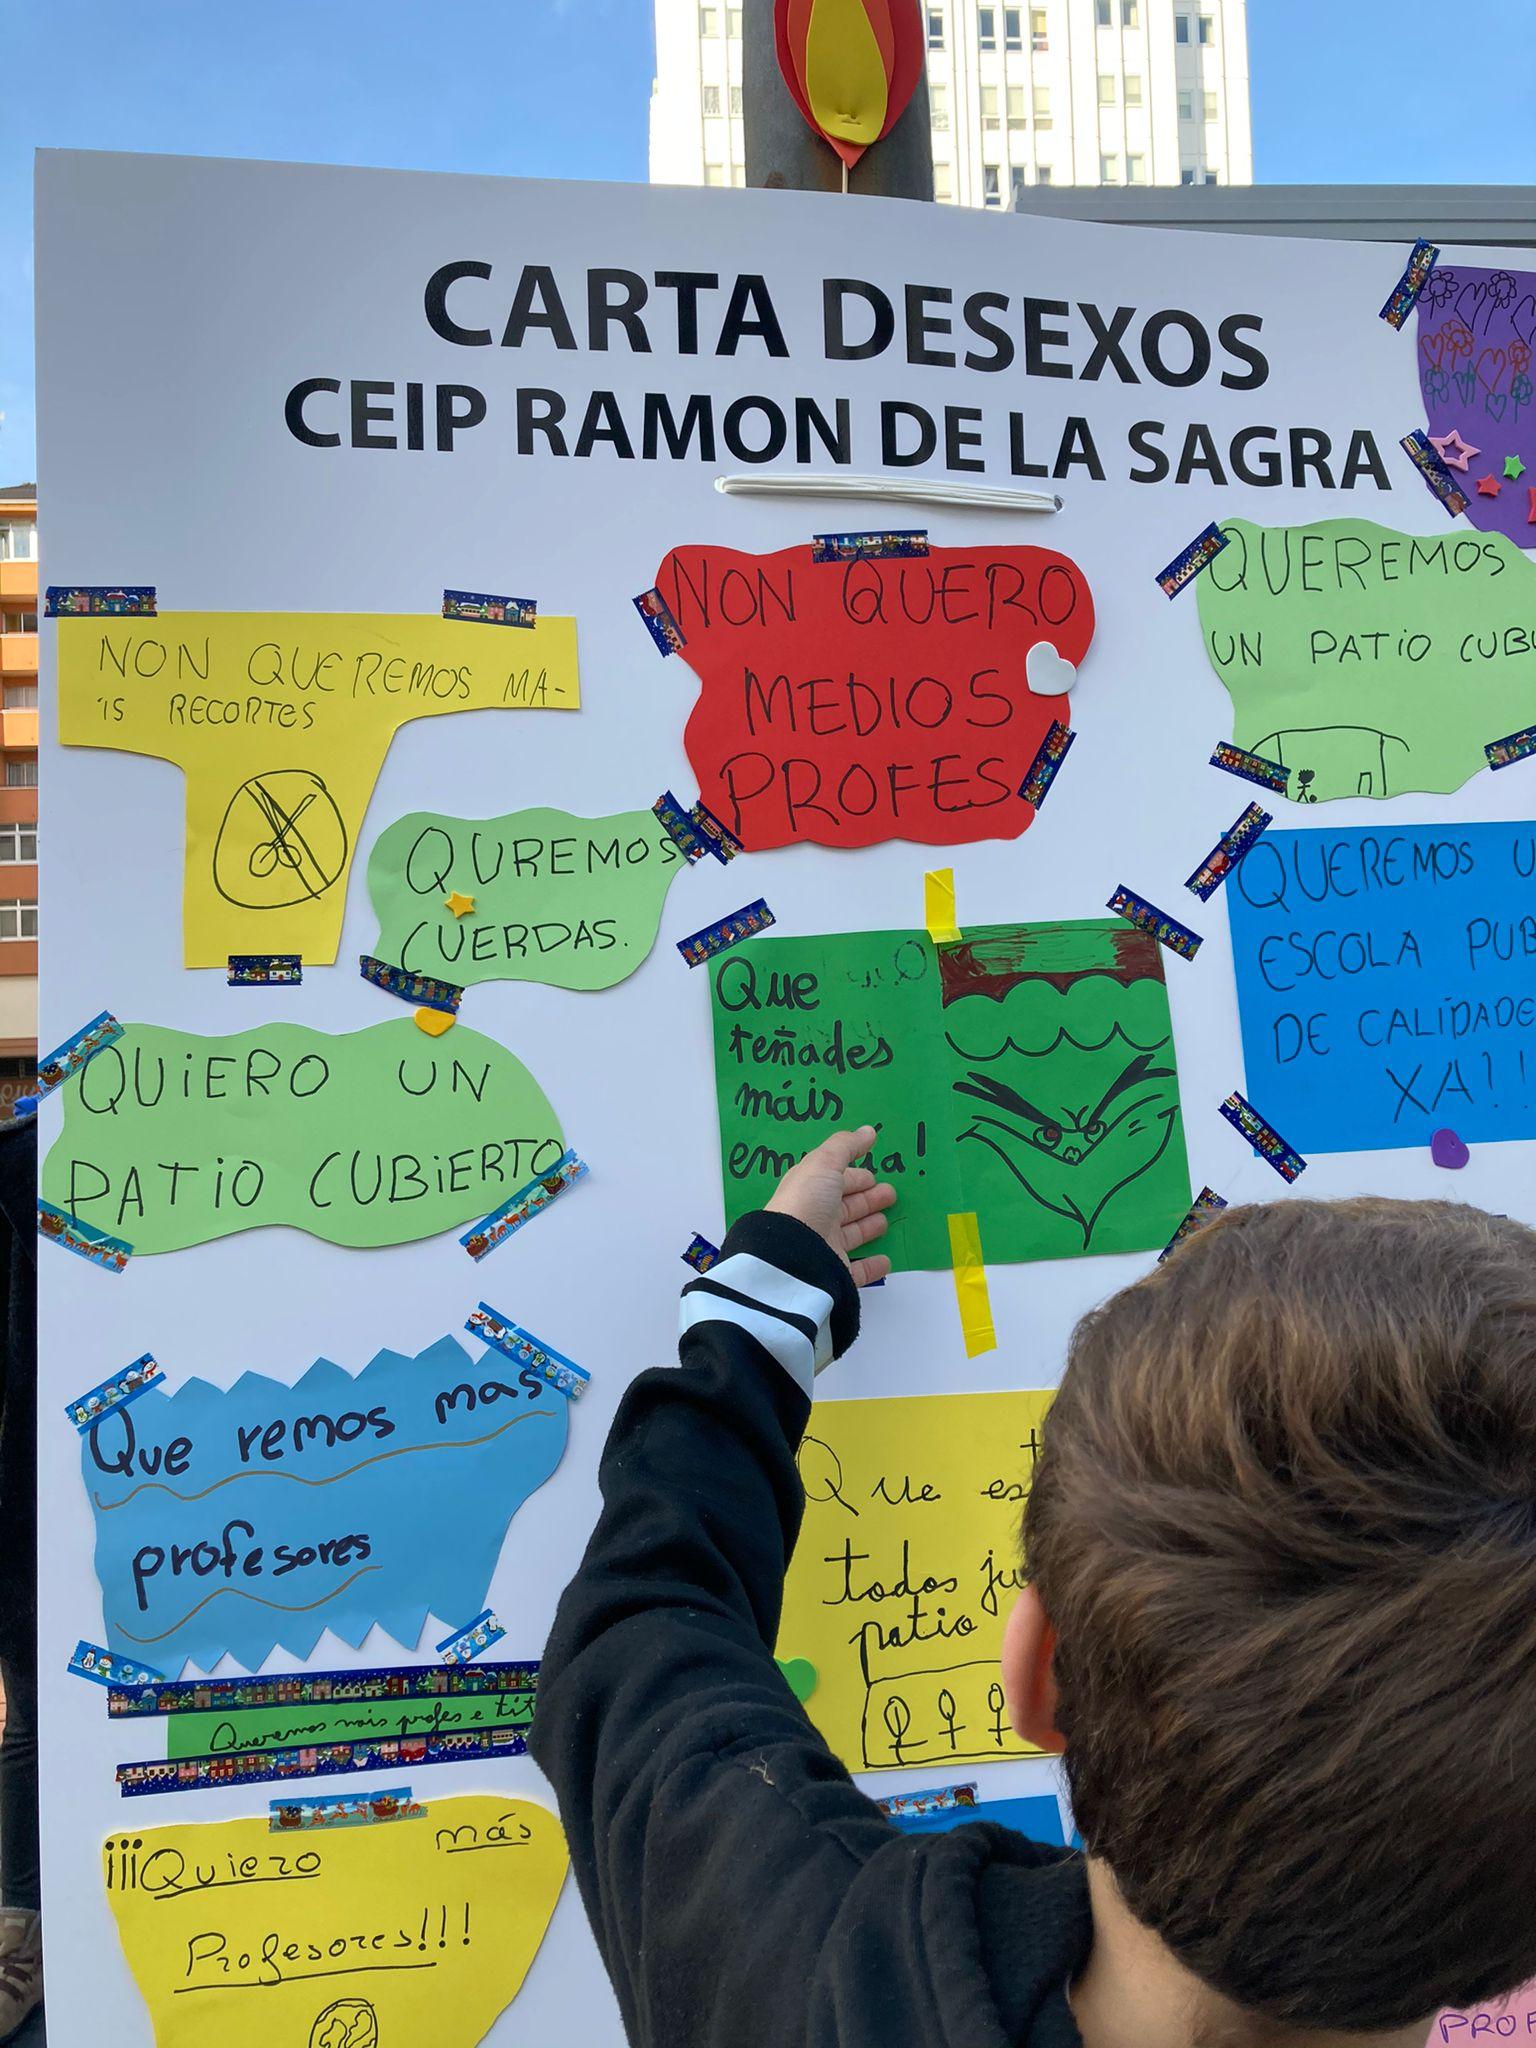 CARTA DESEXOS
CEIP RAMON DE LA SAGRA
NON QUEREMOS MA-
IS RECORTES
NON QUERO
MEDIOS
PROFES
QUEREMOS
UN PATIO CUBI
QUREMOS
CUERDAS.
Que
teñades
máis
QUEREMOS U
ESCOLA PUB
DE CALIDADE
XA!!
QUIERO UN
PATIO CUBIERTO
Que remos mas
profesores
Que est
todos ju
patio
Queremos máis profes e tit
¡¡¡Quiero más
Profesores!!!
PROF